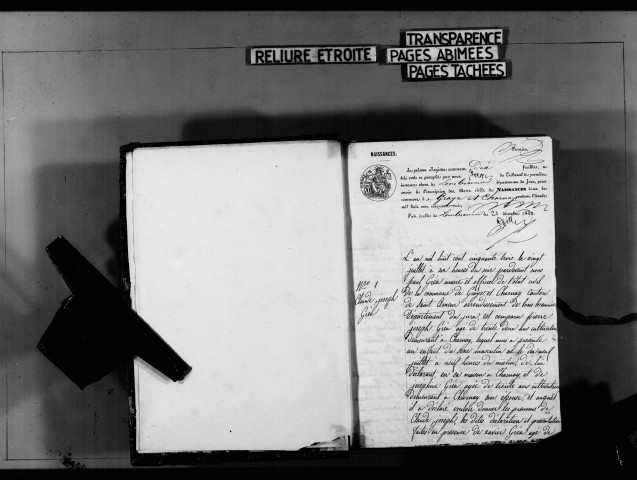 TRANSPARENCE
RELIURE ETROITE PAGES ABIMÉES
PAGES TACHÉES
NAISSANCES.
Le présent Registre contenant Dix feuilles, a
été coté et paraphé par nous du Tribunal de première
instance séant de Lons-le-Saunier département du Jura, pour
servir à l'inscription des Actes civils de NAISSANCES dans la
commune de Graye et Charnay pendant l'année
mil huit cent cinquante-trois
Fait double à Lons-le-Saunier le 23 décembre 1852.
N.ro 1
Claude joseph
Gréa
L'an mil huit cent cinquante trois le vingt
juillet à six heures du soir pardevant nous
paul Gréa maire et officier de l'état civil
de la commune de Graye et Charnay canton
de Saint Amour arrondissement de Lons-le-Saunier
Département du jura, est comparu pierre
joseph Gréa âgé de trente deux ans cultivateur
demeurant à Charnay, lequel nous a présenté
un enfant du sexe masculin né le dix neuf
juillet à neuf heures du matin, de lui
déclarant, en sa maison à Charnay et de
josephine Gréa âgée de trente ans cultivatrice
demeurant à Charnay son épouse, et auquel
il a déclaré vouloir donner les prenoms de
Claude joseph, les dites déclaration et présentation
faites en présence de xavier Gréa âgé de